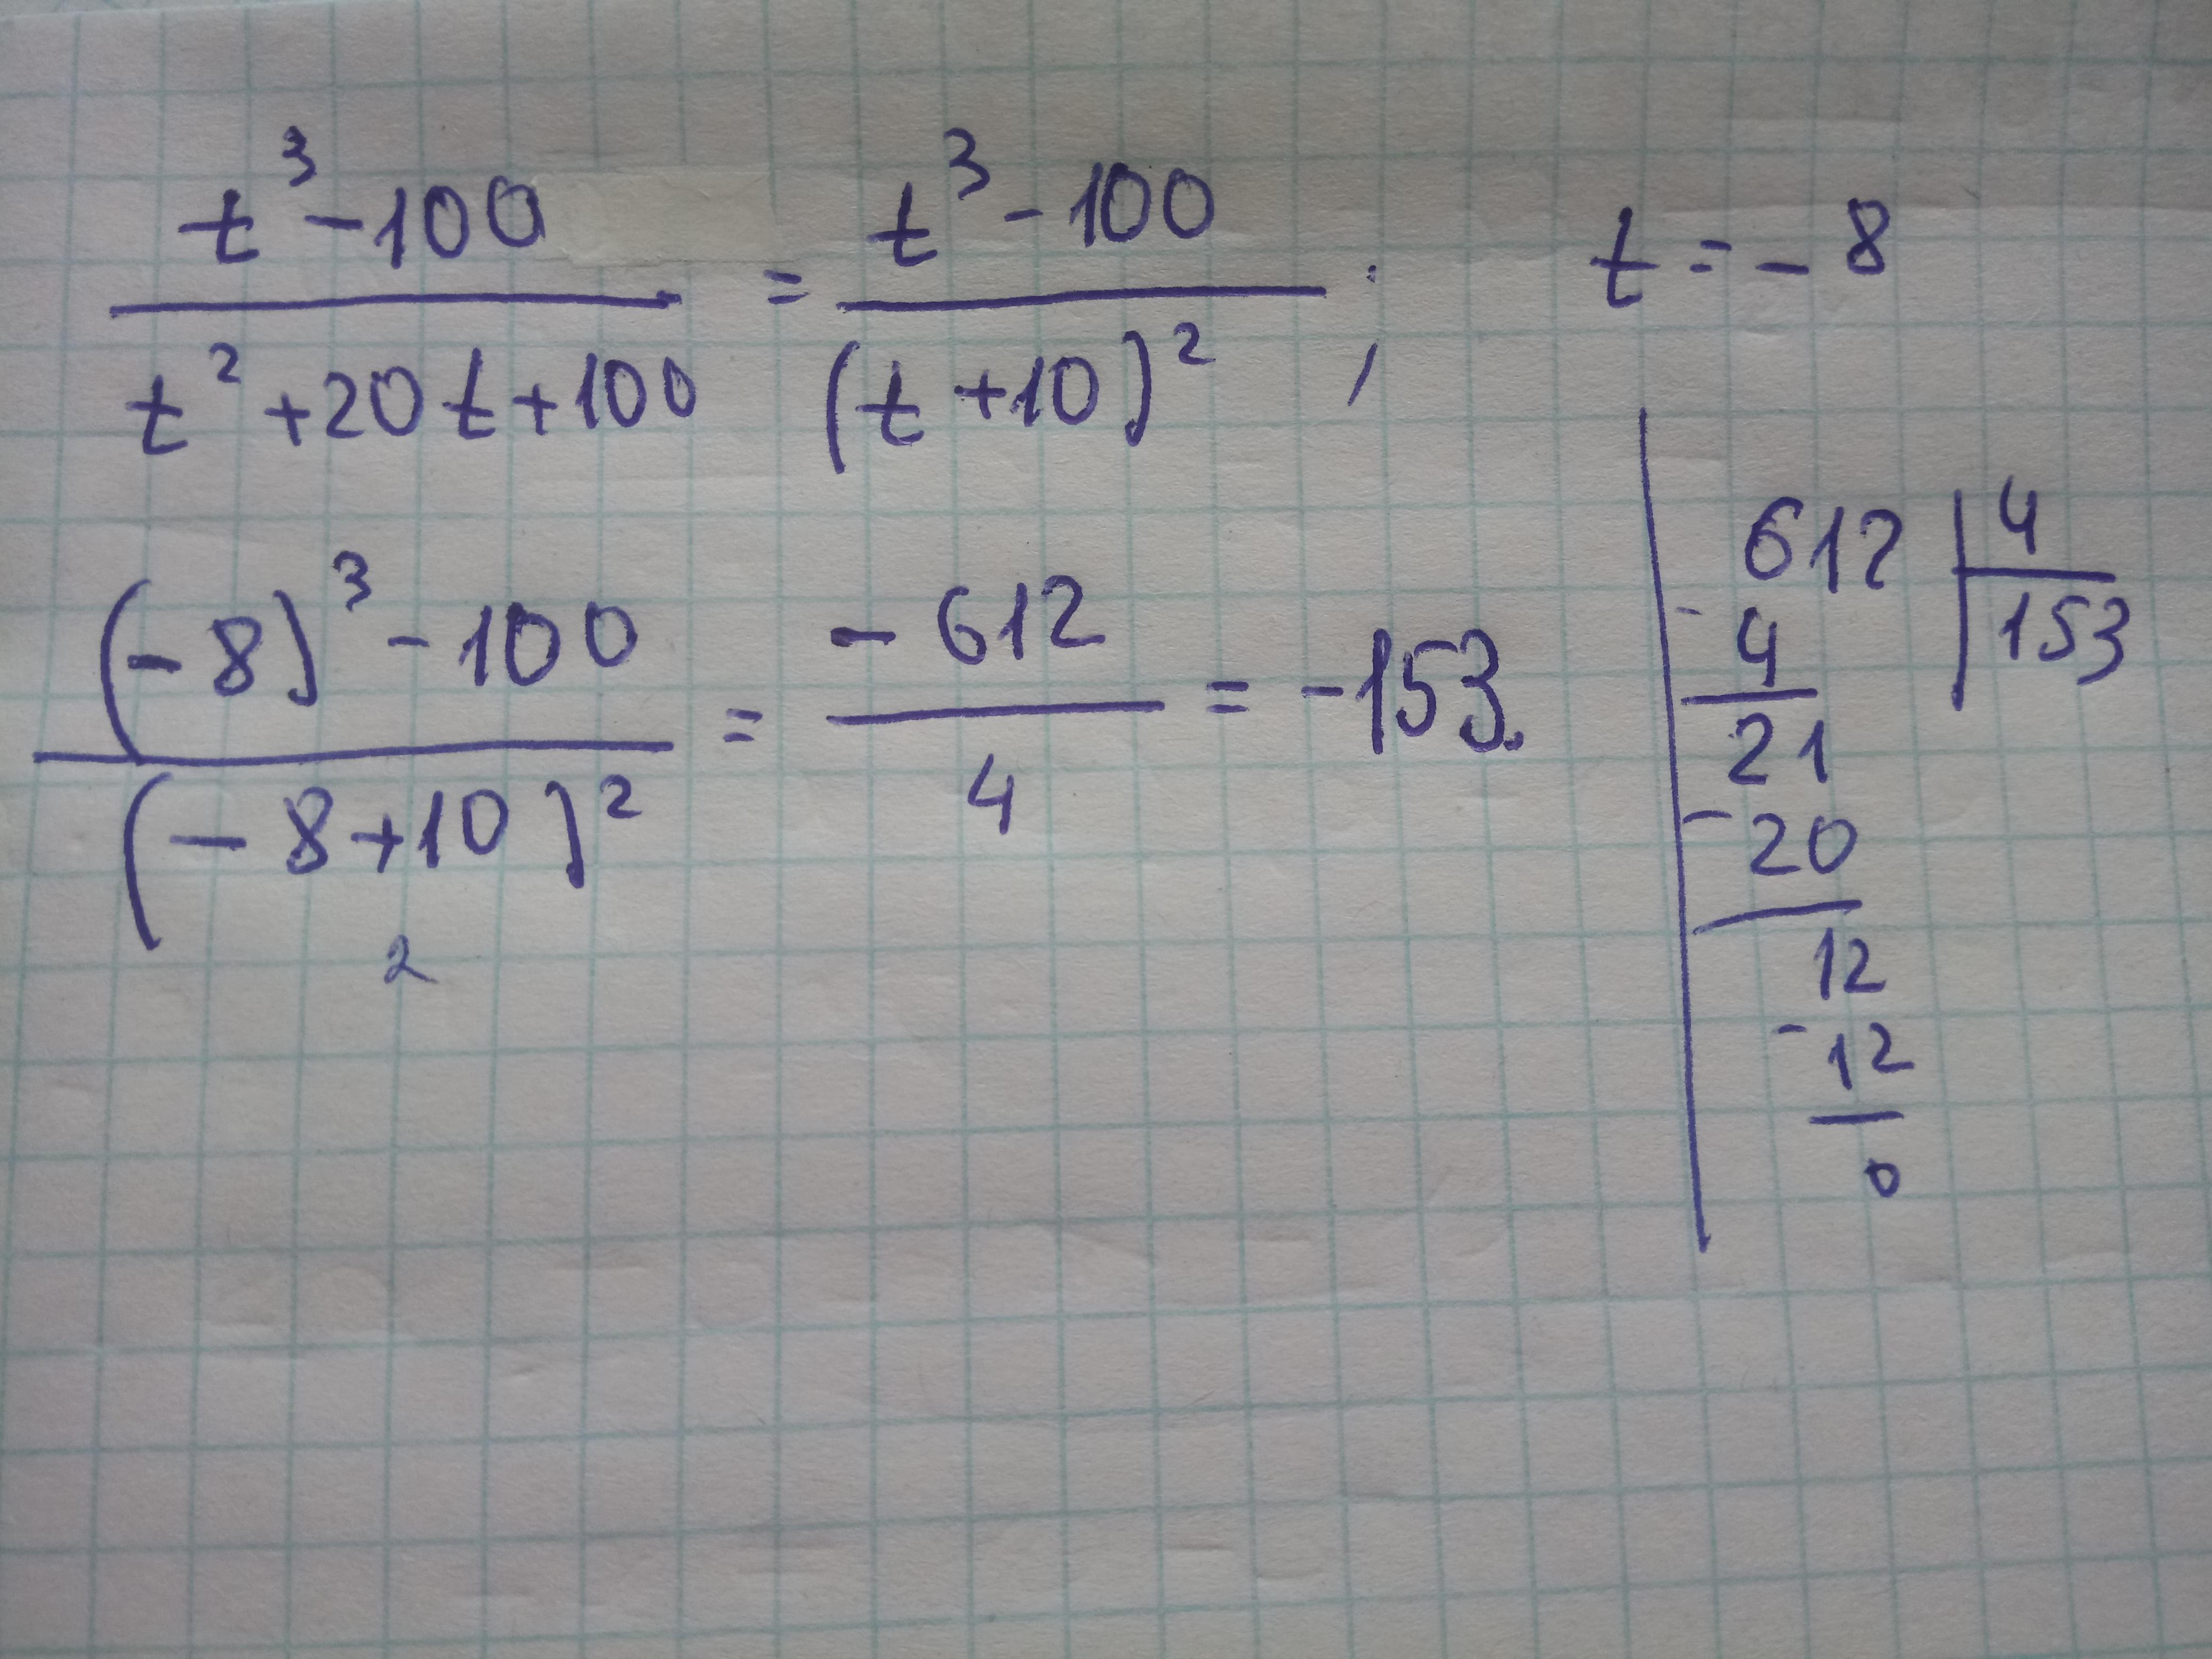 t³ - 100 / t² + 20t + 100 = t³ - 100 / (t + 10)² ; t = - 8
(- 8)³ - 100 / (- 8 + 10)² = - 612 / 4 = - 153.
2
612 | 4
- 4 | 153
21
- 20
12
- 12
0